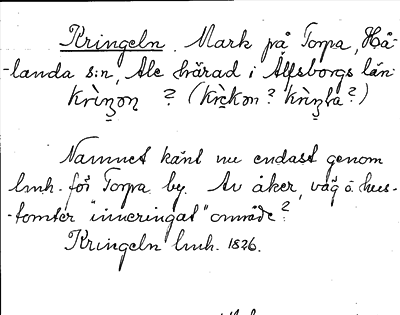 Kringeln. Mark på Torpa, Hå-
-landa s:n, Ale härad i Älfsborgs län
krìŋon ? (krìkon? krìŋla?)
Namnet känt nu endast genom
lmh. för Torpa by. Av åker, väg o. hus-
-tomter "inneringat" område?
Kringeln lmh. 1826.